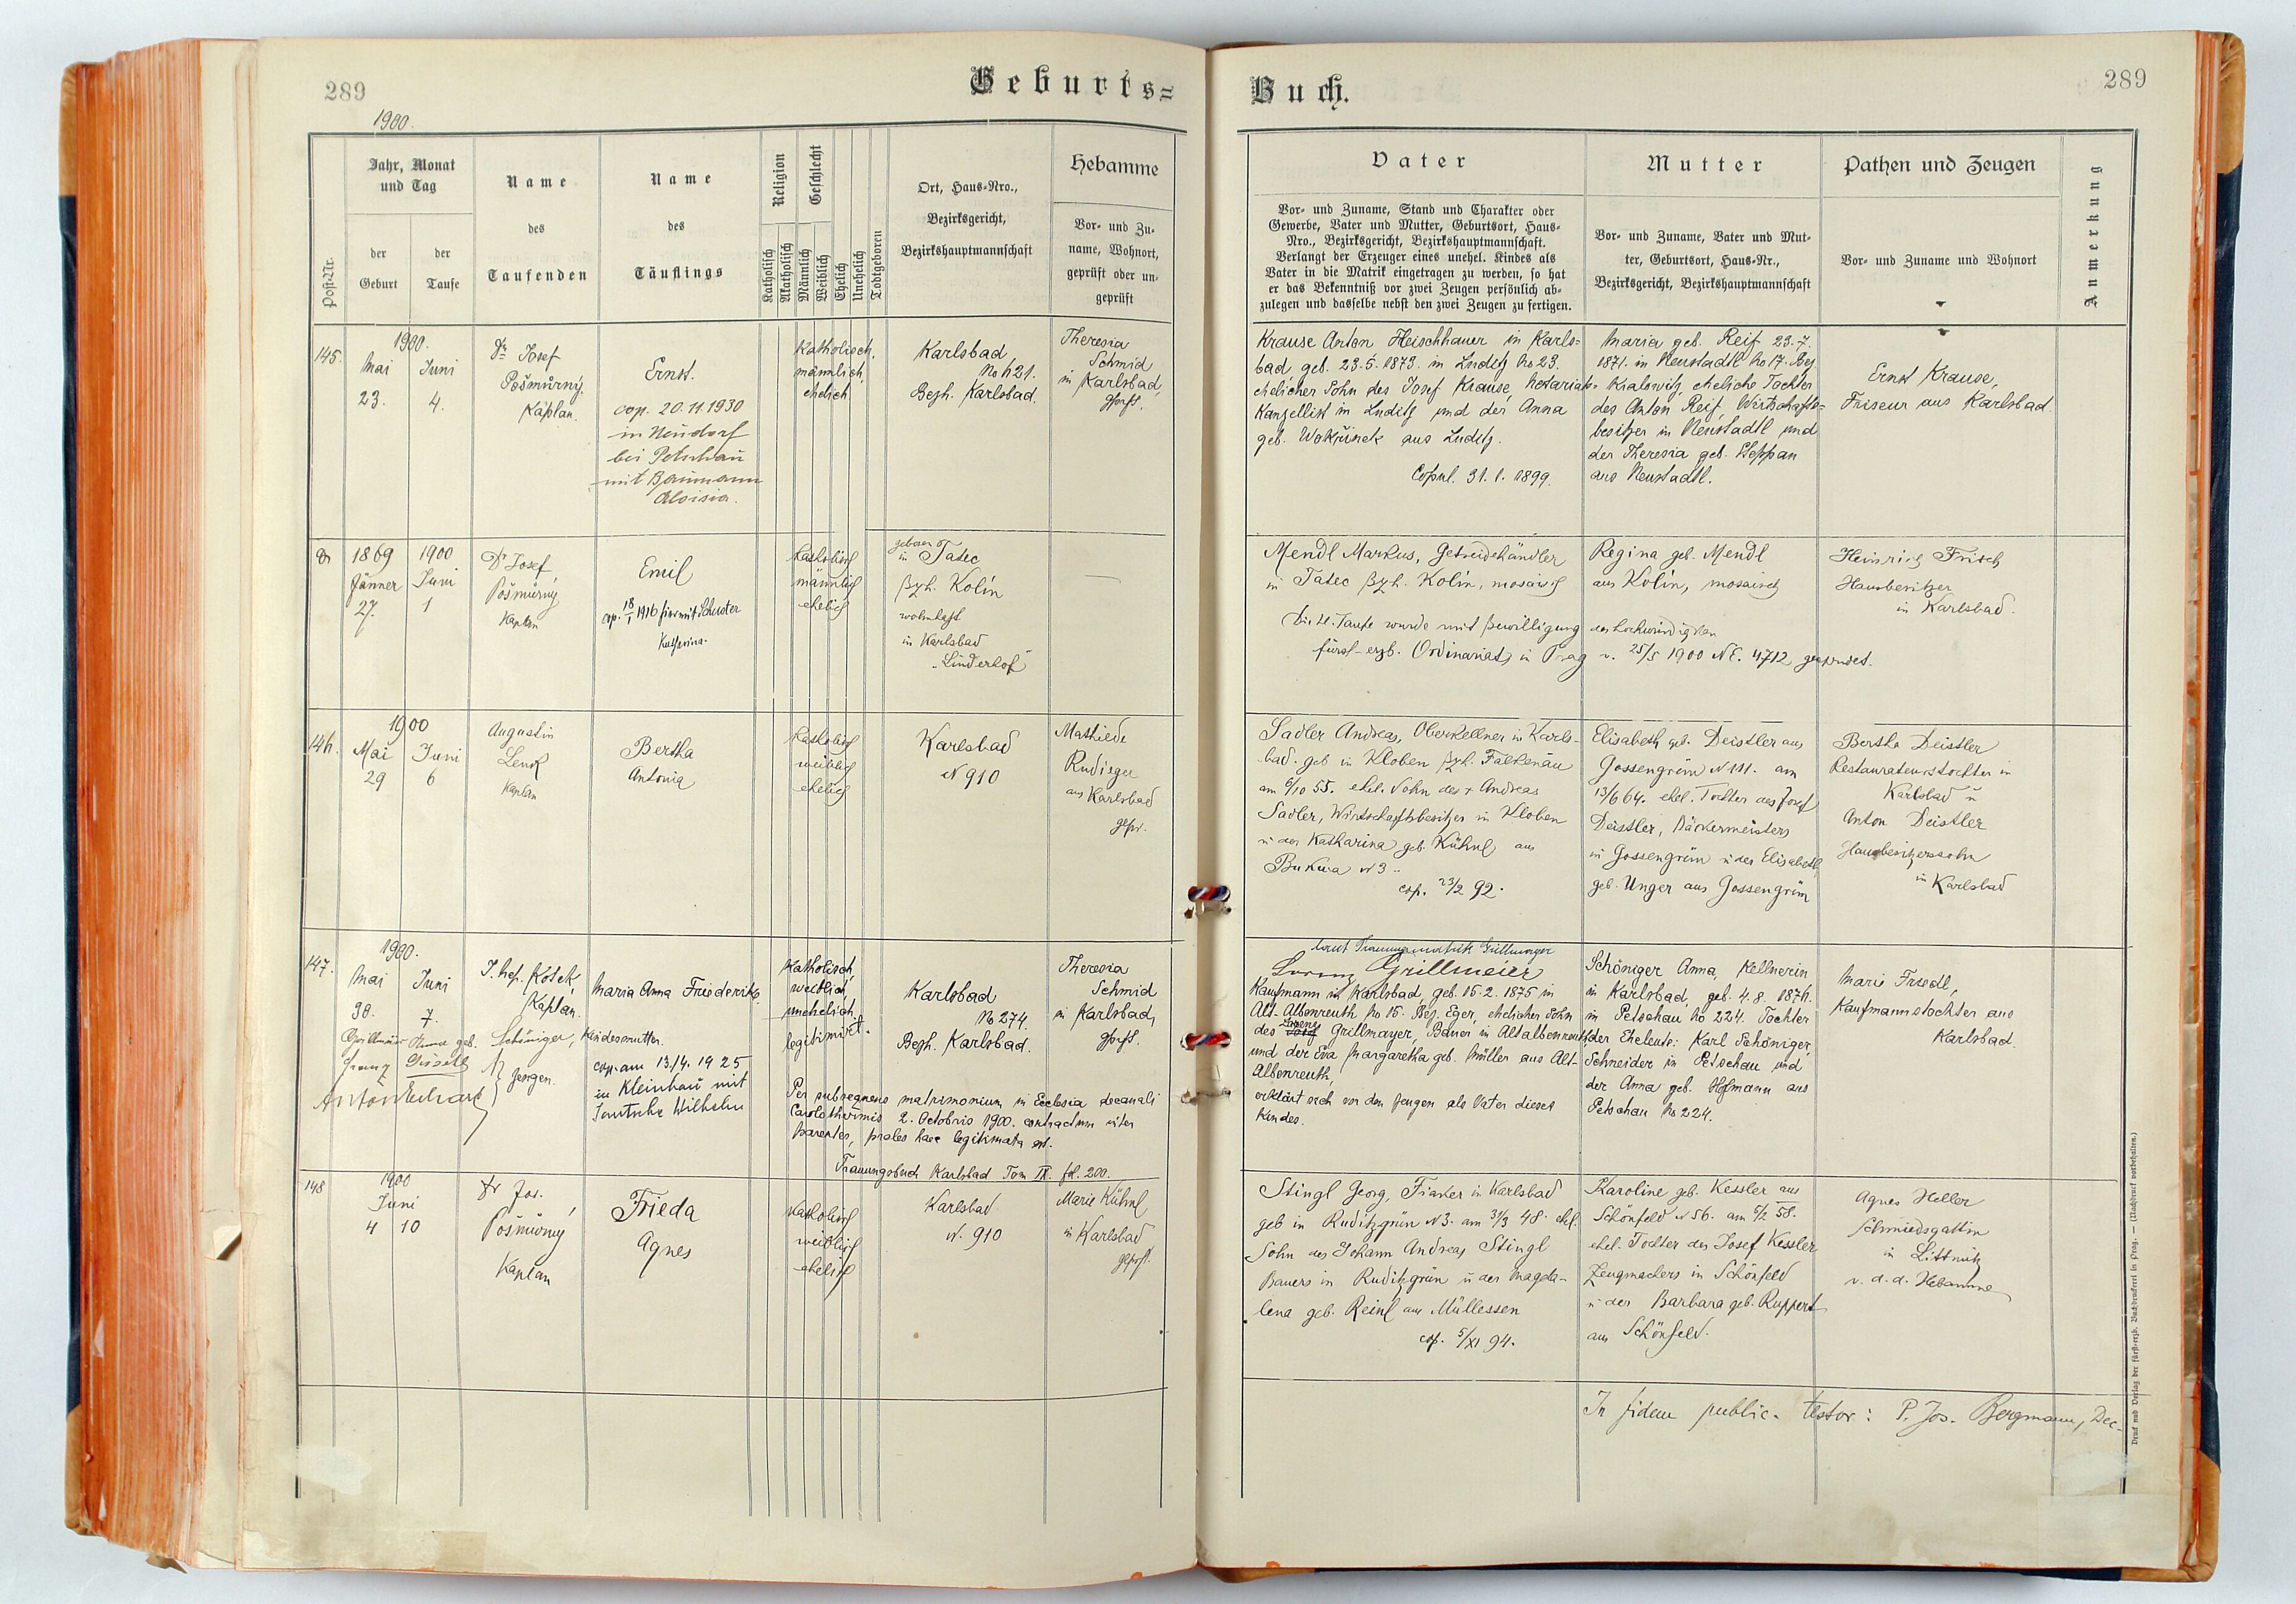 289
Geburts=
1900.
Post-Nr.
Jahr, Monat
und Tag
der
Geburt
der
Taufe
Name
des
Taufenden
Name
des
Täuflings
Religion
Katholisch
Akatholisch
Geschlecht
Männlich
Weiblich
Ehelich
Unehelich
Todtgeboren
Ort, Haus-Nro.,
Bezirksgericht,
Bezirkshauptmannschaft
Hebamme
Vor- und Zu-
name, Wohnort,
geprüft oder un-
geprüft
145.
1900.
Mai Juni
23. 4.
Dr Josef
Pošmůrný,
Kaplan.
Ernst.
cop. 20.11.1930
in Neudorf
bei Petschau
mit Baumann
Aloisia.
Katholisch,
männlich,
ehelich
Karlsbad
No 621.
Bezh. Karlsbad.
Theresia
Schmid
in Karlsbad,
gprft.
1869 1900
Jänner Juni
27. 1
Dr Josef
Pošmůrný
Kaplan
Emil
cop. 18/1 1916 hier mit Schuster
Katharina.
Katholisch
männlich
ehelich
geboren
in Tatec
Bzh. Kolín
wohnhaft
in Karlsbad
„Linderhof"
146.
1900
Mai Juni
29 6
Augustin
Lenk
Kaplan
Bertha
Antonia
Katholisch
weiblich
ehelich
Karlsbad
N 910
Mathilde
aus Karlsbad
gepr.
147.
1900.
Mai Juni
30. 7.
Kotek,
Kaplan.
Maria Anna Friederike.
Katholisch,
weiblich,
unehelich,
legitimirt.
Karlsbad
No 274.
Bezh. Karlsbad.
Theresia
Schmid
in Karlsbad,
gprft.
Grillmeier Anna geb. Schöniger, Kindesmutter.
Franz
Zeugen.
Anton
cop. am 13/4. 1925
in Kleinhau mit
Wilhelm
Per subsequens matrimonium in Ecclesia decanali
Carolothermis 2. Octobris 1900. contractum inter
parentes, proles haec legitimata est.
Trauungsbuch Karlsbad Tom IX. fol. 200.
148
1900
Juni
4 10
Dr Jos.
Pošmůrný
Kaplan
Frieda
Agnes
Katholisch
weiblich
ehelich
Karlsbad
N. 910
Marie Kühnl
in Karlsbad
geprft.
Buch.
289
Vater
Vor- und Zuname, Stand und Charakter oder
Gewerbe, Vater und Mutter, Geburtsort, Haus-
Nro., Bezirksgericht, Bezirkshauptmannschaft.
Verlangt der Erzeuger eines unehel. Kindes als
Vater in die Matrik eingetragen zu werden, so hat
er das Bekenntniß vor zwei Zeugen persönlich ab-
zulegen und dasselbe nebst den zwei Zeugen zu fertigen.
Mutter
Vor- und Zuname, Vater und Mut-
ter, Geburtsort, Haus-Nr.,
Bezirksgericht, Bezirkshauptmannschaft
Pathen und Zeugen
Vor- und Zuname und Wohnort
Anmerkung
Krause Anton Fleischhauer in Karls-
bad geb. 23.5.1873. in Luditz No 23.
ehelicher Sohn des Josef Krause, Notariats-
Kanzellist in Luditz und der Anna
geb. Wokřinek aus Luditz.
Copul. 31. 1. 1899.
Maria geb. Reif 23.7.
1871. in Neustadtl No 17. Bez.
Kralowitz, eheliche Tochter
des Anton Reif, Wirtschafts-
besitzer in Neustadtl und
der Theresia geb. Steppan
aus Neustadtl.
Ernst Krause,
Friseur aus Karlsbad.
Mendl Markus, Getreidehändler
in Tatec Bzh. Kolín, mosaisch
Regina geb. Mendl
aus Kolín, mosaisch
Heinrich Frisch
Hausbesitzer
in Karlsbad.
Die hl. Taufe wurde mit Bewilligung des hochwürdigsten
fürst-erzb. Ordinariats in Prag v. 25/5 1900 NE. 4712 gespendet.
Sadler Andreas, Oberkellner in Karls-
bad. geb in Kloben Bzh. Falkenau
am 6/10 55. ehel. Sohn des + Andreas
Sadler, Wirtschaftsbesitzer in Kloben
u der Katharina geb. Kühnl aus
Bukwa N 3.
cop. 23/2 92.
Elisabeth geb. Deistler aus
Gossengrün N 111. am
13/6 64. ehel. Tochter des Josef
Deistler, Bäckermeisters
in Gossengrün u der Elisabeth
geb. Unger aus Gossengrün
Bertha Deistler
Restaurateurstochter in
Karlsbad u
Anton Deistler
Hausbesitzerssohn
in Karlsbad
laut Trauungsmatrik Grillmayer
Lorenz Grillmeier
Kaufmann in Karlsbad, geb. 15.2.1875 in
Alt-Albenreuth No 15. Bez. Eger, ehelicher Sohn
des Lorenz Grillmayer, Bauer in Altalbenreuth
und der Eva Margaretha geb. Müller aus Alt-
Albenreuth,
erklärt sich vor den Zeugen als Vater dieses
Kindes.
Schöniger Anna, Kellnerin
in Karlsbad, geb. 4.8. 1876.
in Petschau No 224. Tochter
der Eheleute: Karl Schöniger,
Schneider in Petschau und
der Anna geb. Hofmann aus
Petschau No 224.
Marie Friedl,
Kaufmannstochter aus
Karlsbad.
Stingl Georg, Fiaker in Karlsbad
geb in Ruditzgrün N 3. am 31/3 48. ehel.
Sohn des Johann Andreas Stingl
Bauers in Ruditzgrün u der Magda-
lena geb. Reinl aus Müllessen
cop. 5/XI 94.
Karoline geb. Kessler aus
Schönfeld N 56. am 5/2 58.
ehel. Tochter des Josef Kessler
Zeugmachers in Schönfeld
u der Barbara geb. Ruppert
aus Schönfeld.
Agnes Heller
Schmiedsgattin
in Littmitz
v. d. d. Hebamme
In fidem public. testor: P. Jos. Bergmann, Dec.
Druck und Verlag der fürst-erzb. Buchdruckerei in Prag. — (Nachdruck vorbehalten.)